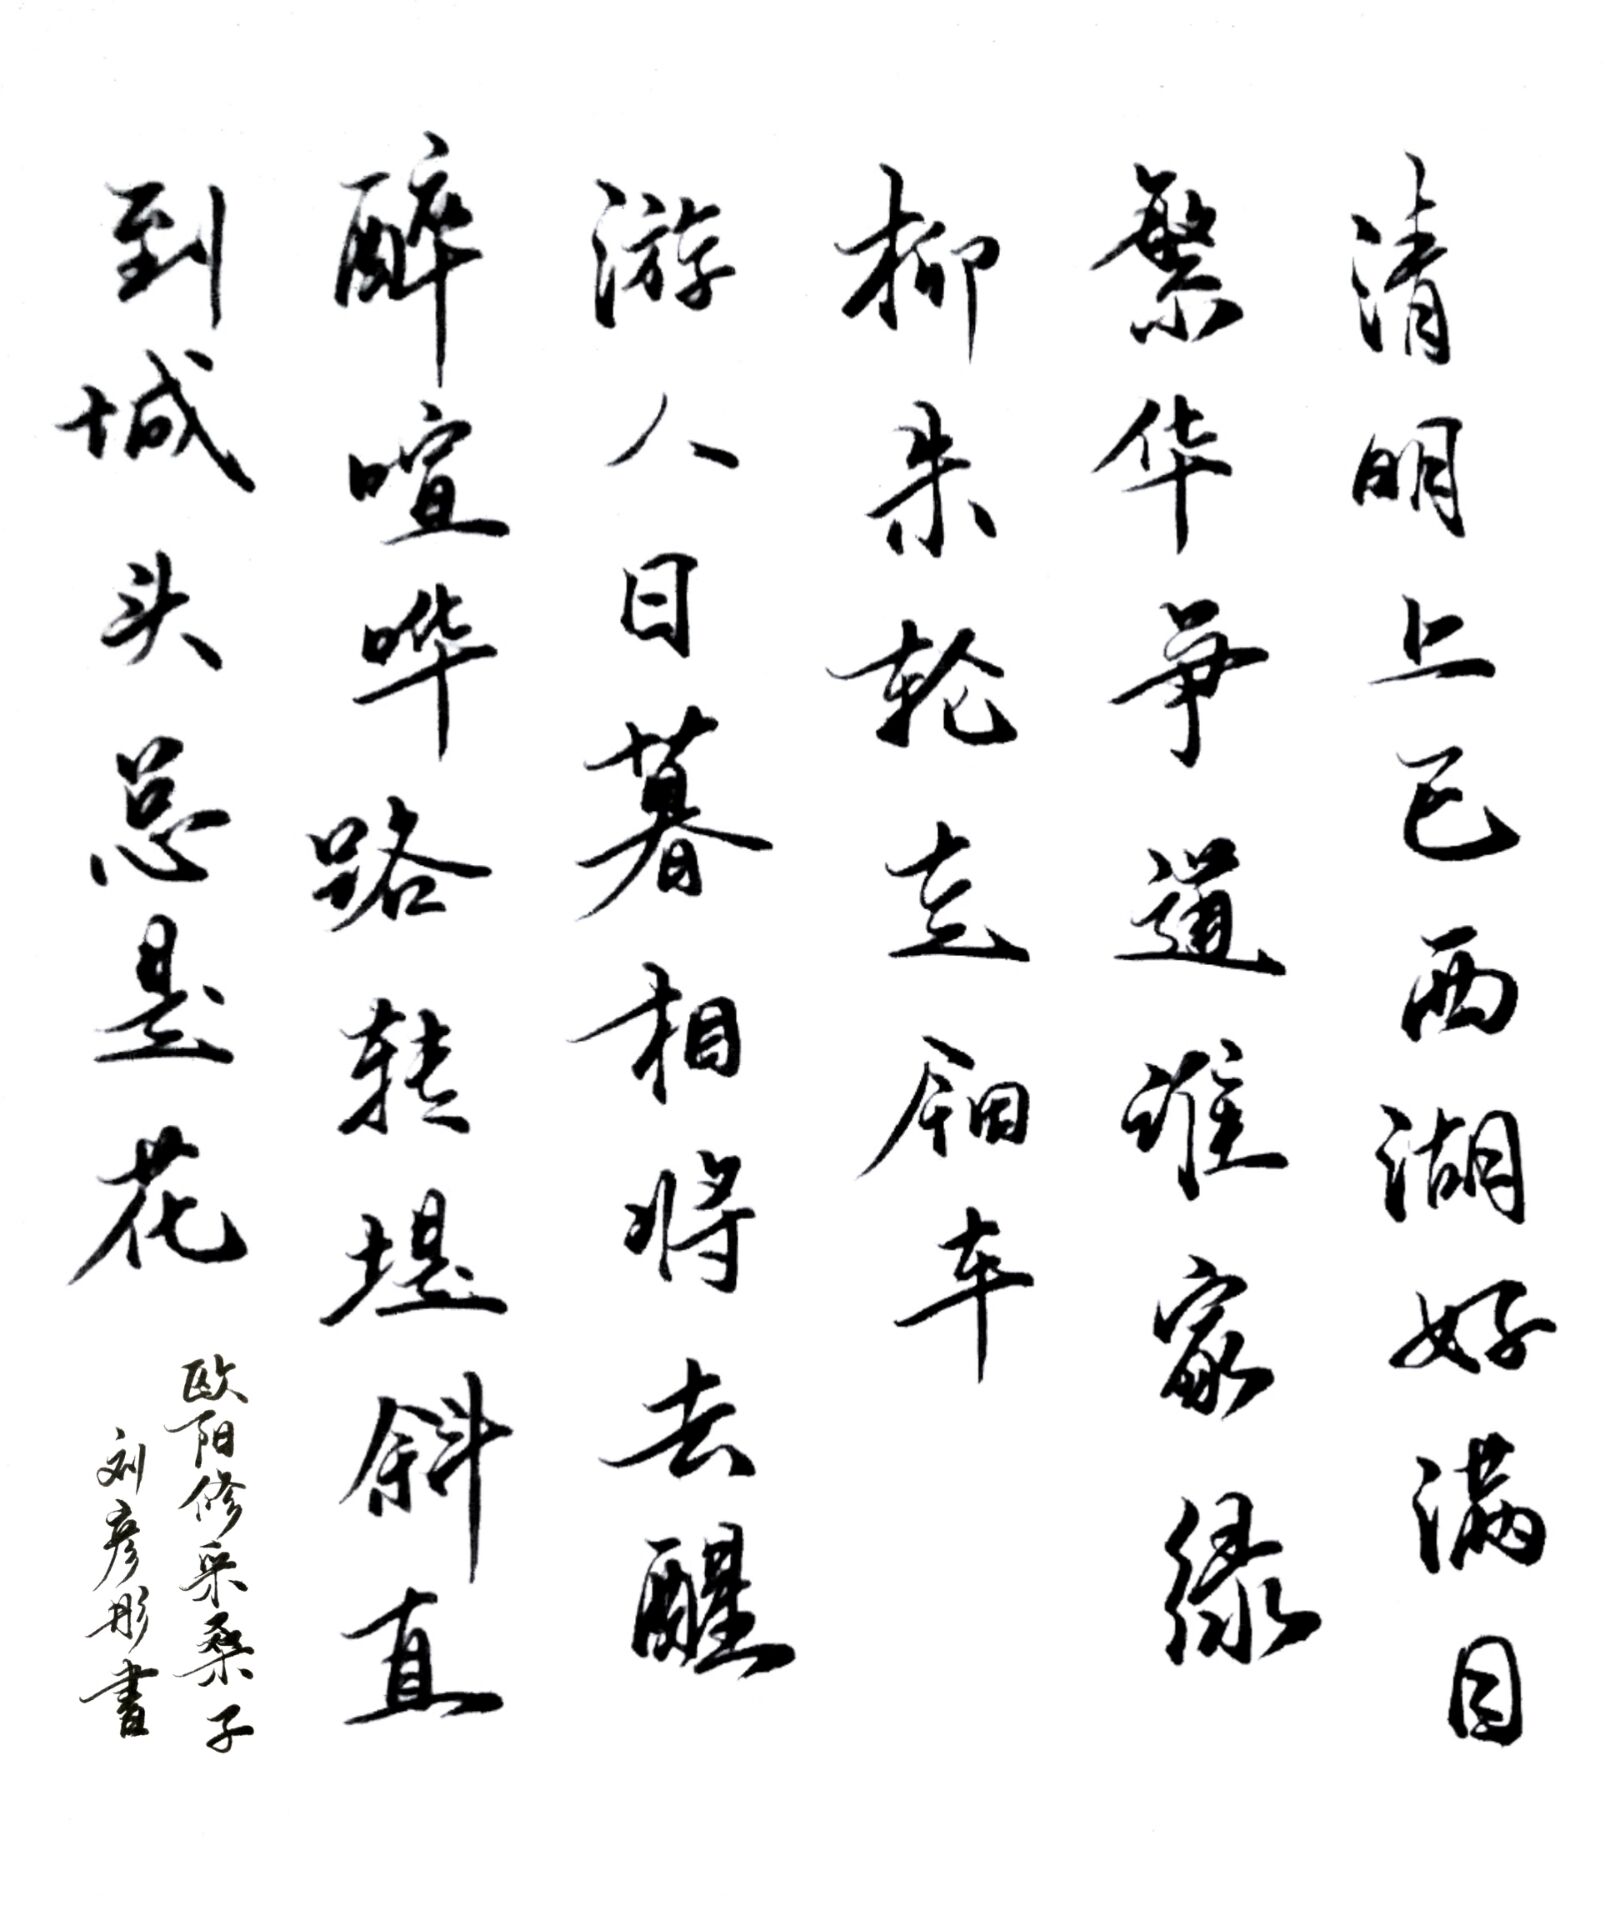 清明上巳西湖好满目
繁华争道谁家绿
柳朱轮走钿车
游人日暮相将去醒
醉喧哗路转堤斜直
到城头总是花
欧阳修采桑子
刘彦彤書